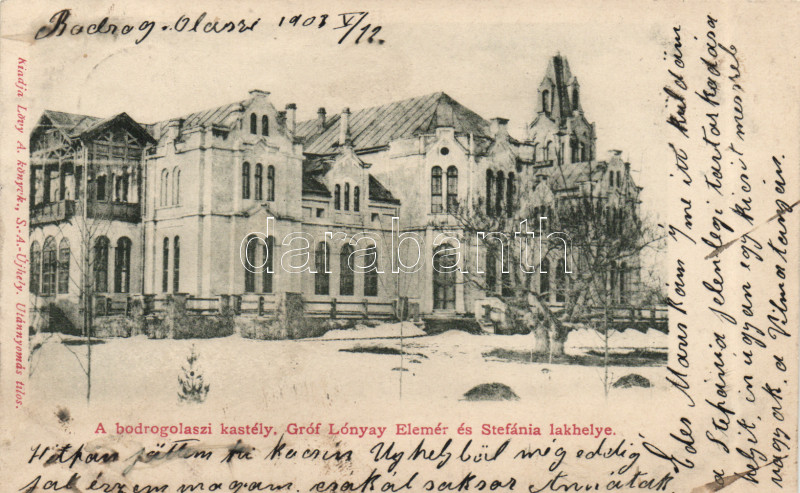 Bodrog-Olaszi 1903 V/12.
Kiadja Lövy A. könyvk., S.-A.-Ujhely. Utánnyomás tilos.
darabanth.com
A bodrogolaszi kastély. Gróf Lónyay Elemér és Stefánia lakhelye.
Hotpan jöttem ki kocsin Ujhelyből még eddig
jól érzem magam, csakal soksor Annáták
Édes Manskám ime itt küldöm
a Stefánia jelenlegi tartozkodása
helyit, in ugyan egy kicsit messzeb
vagyok. a Vilma tanyán.